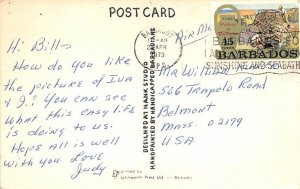 POST CARD
Hi Bills
How do you like
the picture of IVA
& I? You can see
what this easy life
is doing to us.
Hope all is well
with you. Love
Judy
DESIGNED BY NANK STUDIO
HANDPAINTED BY HANDICAPPED BARBADIANS
Printed by
Letchworth Press Ltd — Barbados
APR
1973
Air Mail
15
BARBADOS
SUNSHINE AND SEABATH
Mr William
566 Trapelo Road
Belmont
Mass. 02179
U.S.A.